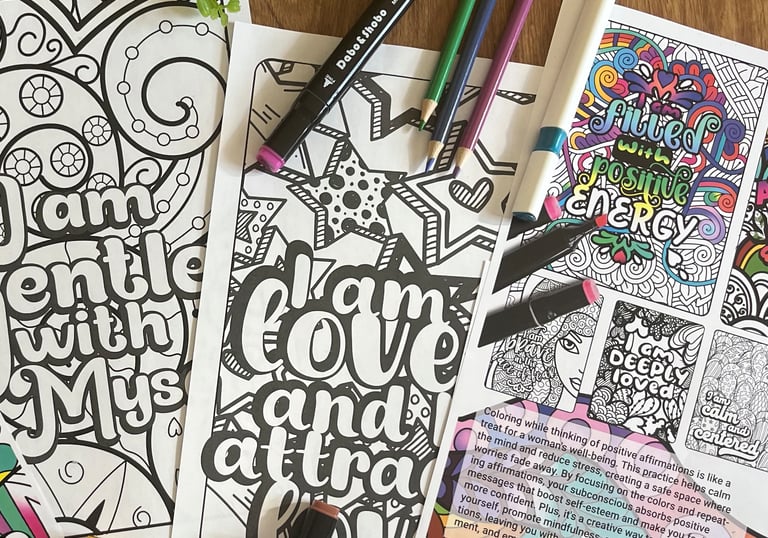 I am
entle
with
Mys
Dabo&Shobo
I am
love
and
attra
I am
filled
with
positive
ENERGY
I am
I am
DEEPLY
loved
I am
calm
and
centered
Coloring while thinking of positive affirmations is like a
treat for a woman's well-being. This practice helps calm
the mind and reduce stress, creating a safe space where
worries fade away. By focusing on the colors and repeat-
ing affirmations, your subconscious absorbs positive
messages that boost self-esteem and make you
more confident. Plus, it's a creative way
yourself, promote mindfulness
tions, leaving you with
ment, and